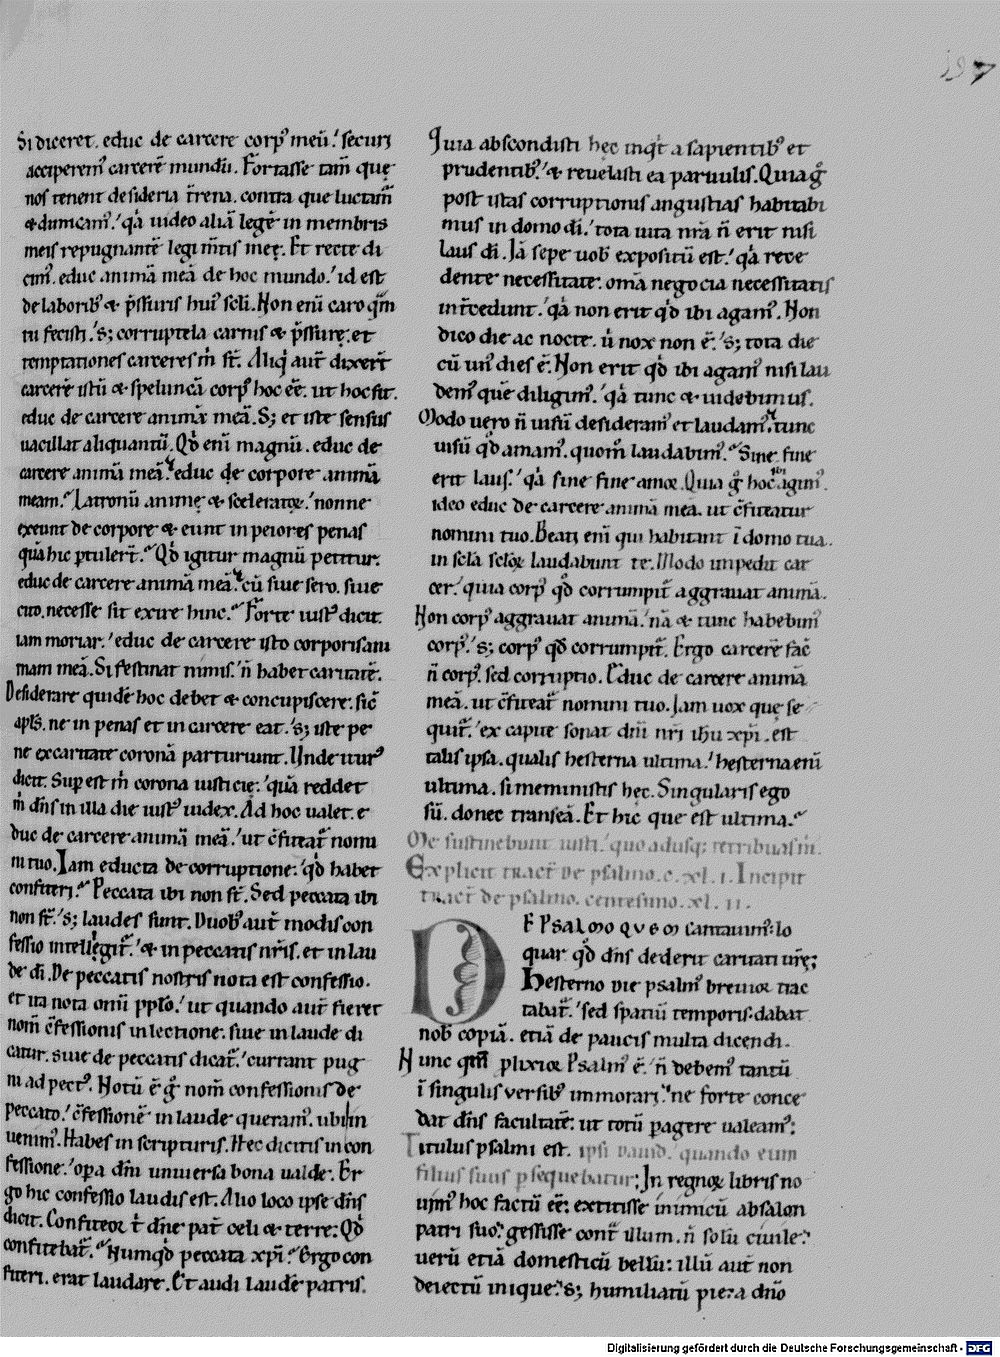 197
Si diceret. educ de carcere corpꝰ meū.' securi
acciperemꝰ carcerē mundū. Fortasse tam̄ quę
nos tenent desideria t̄rena. contra que luctam̄
& dimicamꝰ.' qͣ uideo aliā legē in membris
meis repugnantē legi m̄tis meę. Et recte di
cimꝰ. educ animā meā de hoc mundo.' id est
de laboribꝰ & p̄ssuris huiꝰ scli. Non eni caro qm̄
tu fecisti.' s; corruptela carnis & p̄ssurę. et
temptationes carceres m̄ st̄. Aliqͥ aut̄ dixert̄
carcerē istū & speluncā corpꝰ hoc ēē. ut hoc sit.
educ de carcere animā meā. S; et iste sensus
uacillat aliquantū. Qd̄ eni magnū. educ de
carcere animā meā. educ de corpore animā
meam. Latronū animę & sceleratoꝝ.' nonne
exeunt de corpore & eunt in peiores penas
quā hic ꝑtulert̄. Qd̄ igitur magnū petitur.
educ de carcere animā meā. cū siue sero. siue
cito. necesse sit exire hinc. Forte iustꝰ dicit.
iam moriar.' educ de carcere isto corporis ani
mam meā. Si festinat nimis.' n̄ habet caritatē.
Desiderare quidē hoc debet & concupiscere. sic̄
apl̄s. ne in penas et in carcere eat.' s; iste pe
ne ex caritate coronā parturiunt. Unde iturꝰ
dicit. Suꝑest m̄ corona iusticię.' quā reddet
m̄ dn̄s in illa die iustꝰ iudex. Ad hoc ualet. e
duc de carcere animā meā.' ut ͻfiteat̄ nomi
ni tuo. Iam educta de corruptione.' qd̄ habet
confiteri. Peccata ibi non st̄. Sed peccata ibi
non st̄.' s; laudes sunt. Duobꝰ aut̄ modis con
fessio intelligit̄.' & in peccatis nr̄is. et in lau
de dī. De peccatis nostris nota est confessio.
et ita nota omī ppl̄o.' ut quando aut̄ fieret
nom̄ ͻfessionis in lectione. siue in laude di
catur. siue de peccatis dicat̄.' currant pug
ni ad pectꝰ. Notū ē gͦ nom̄ confessionis de
peccato.' ͻfessionē in laude queramꝰ. ubi in
uenimꝰ. Habes in scripturis. Hec dicitis in con
fessione.' opa dn̄i uniuersa bona ualde. Er
go hic confessio laudis est. Alio loco ipse dn̄s
dicit. Confiteor t̄ dn̄e pat̄ celi & terre. Qd̄
confitebat̄. Numqd̄ peccata xp̄i. Ergo con
fiteri. erat laudare. Et audi laudē patris.
Quia abscondisti hęc inqͥt a sapientibꝰ et
prudentibꝰ.' & reuelasti ea paruulis. Quia gͦ
post istas corruptionis angustias habitabi
mus in domo dī.' tota uita nr̄a n̄ erit nisi
laus dī. Jā sepe uob̄ expositū est.' qͣ rece
dente necessitate. om̄a negocia necessitatis
int̄cedunt.' qͣ non erit qd̄ ibi agamꝰ. Non
dico die ac nocte. ū nox non ē.' s; tota die
cū unꝰ dies ē. Non erit qd̄ ibi agamꝰ nisi lau
demꝰ quē diligimꝰ.' qͣ tunc & uidebimus.
Modo uero n̄ uisū desideramꝰ et laudamꝰ. tunc
uisū qd̄ amamꝰ. quom̄ laudabimꝰ. Sine fine
erit laus.' qͣ sine fine amor. Quia gͦ hoc ibi agimꝰ.
ideo educ de carcere animā meā. ut ͻfiteatur
nomini tuo. Beati eni qui habitant ī domo tua.
in scl̄a scl̄oꝝ laudabunt te. Modo impedit car
cer.' quia corpꝰ qd̄ corrumpit̄ aggrauat animā.
Non corpꝰ aggrauat animā.' nā & tunc habebimꝰ
corpꝰ.' s; corpꝰ qd̄ corrumpit̄. Ergo carcerē fac̄
n̄ corpꝰ. sed corruptio. Educ de carcere animā
meā. ut ͻfiteat̄ nomini tuo. Jam uox que se
quit̄.' ex capite sonat dn̄i nr̄i ih̄u xp̄i. est
talis ipsa. qualis hesterna ultima.' hesterna eni
ultima. si meministis hęc. Singularis ego
sū. donec transeā. Et hic que est ultima.
Me sustinebunt iusti.' quo adusq; retribuas m̄.
Explicit tract̄ de psalmo. c. xl. i. Incipit
tract̄ de psalmo. centesimo. xl. ii.
DE PSALMO QUEM cantauimꝰ. lo
quar qd̄ dn̄s dederit caritati ur̄ę;
Hesterno die psalmꝰ breuior trac
tabat̄.' sed spatiū temporis. dabat
nob̄ copiā. etiā de paucis multa dicendi.
Nunc qm̄ plixior Psalmꝰ ē.' n̄ debemꝰ tantū
ī singulis versibꝰ inmorari.' ne forte conce
dat dn̄s facultatē. ut totū ꝑagere ualeamꝰ;
Titulus psalmi est. ipsi dauid. quando eum
filius suus ꝑsequebatur; In regnoꝝ libris no
uimꝰ hoc factū ēē. extitisse inimicū absalon
patri suo. gessisse cont̄ illum. n̄ solū ciuile.
uerū etiā domesticū bellū. illū aut̄ non
deiectū inique. s; humiliatū pie. a dn̄o
Digitalisierung gefördert durch die Deutsche Forschungsgemeinschaft - DFG